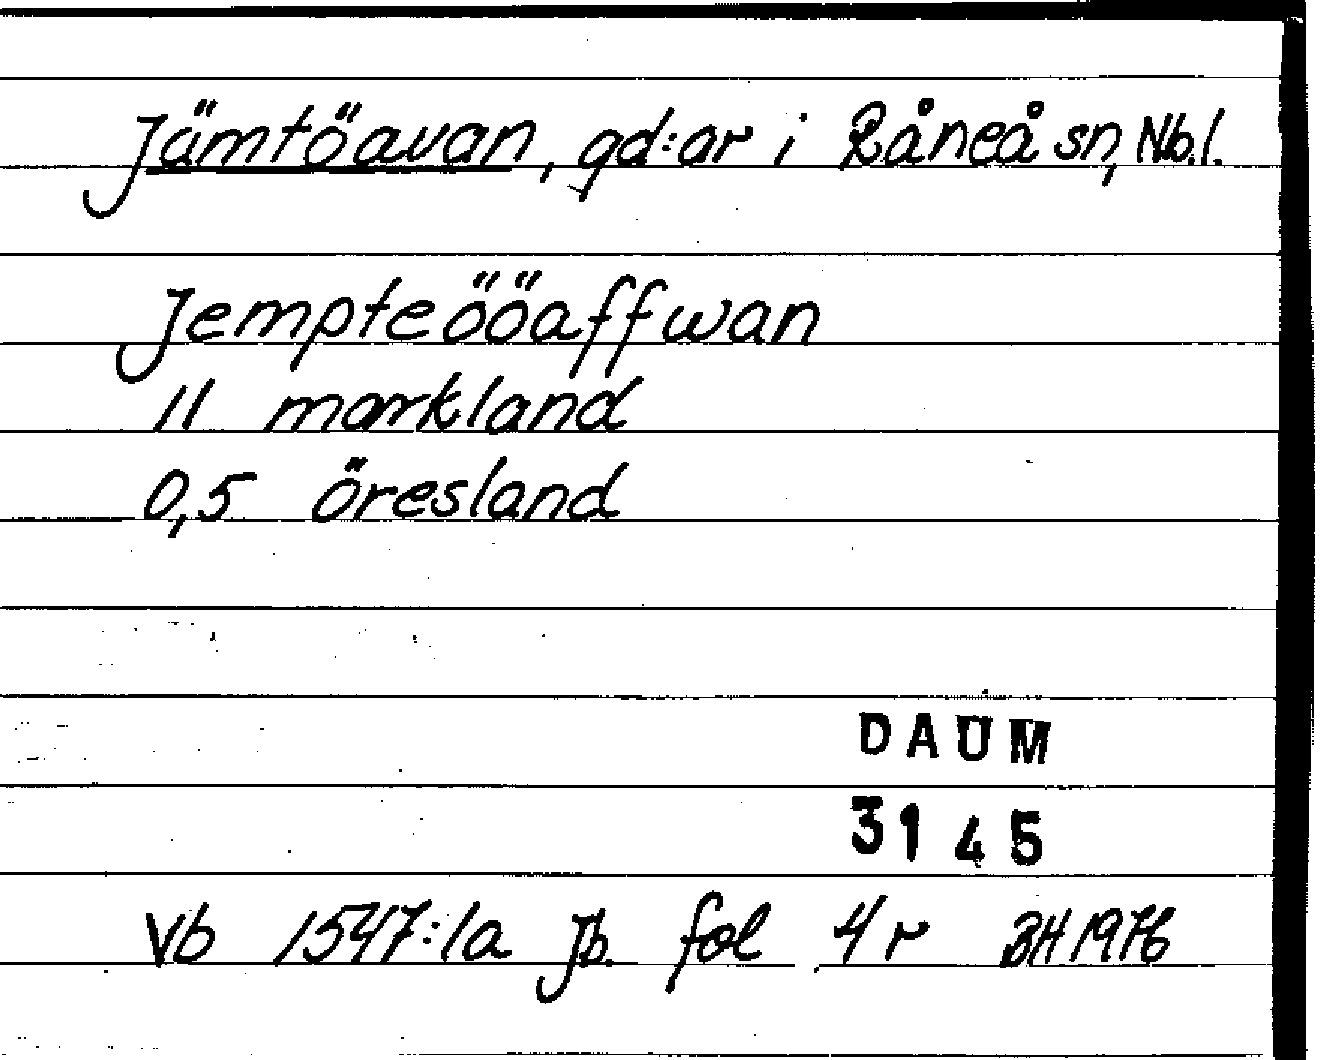 Jämtöavan, gd:ar i Råneå sn, Nb.l.
Jempteööaffwan
11 markland
0,5 öresland
DAUM
3145
Vb 1547:1a Jb. fol 4 r BH 1976